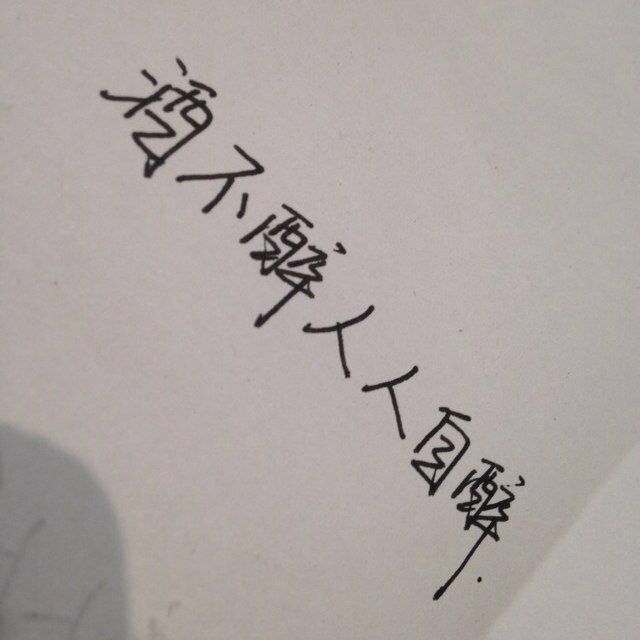 酒不醉人人自醉.